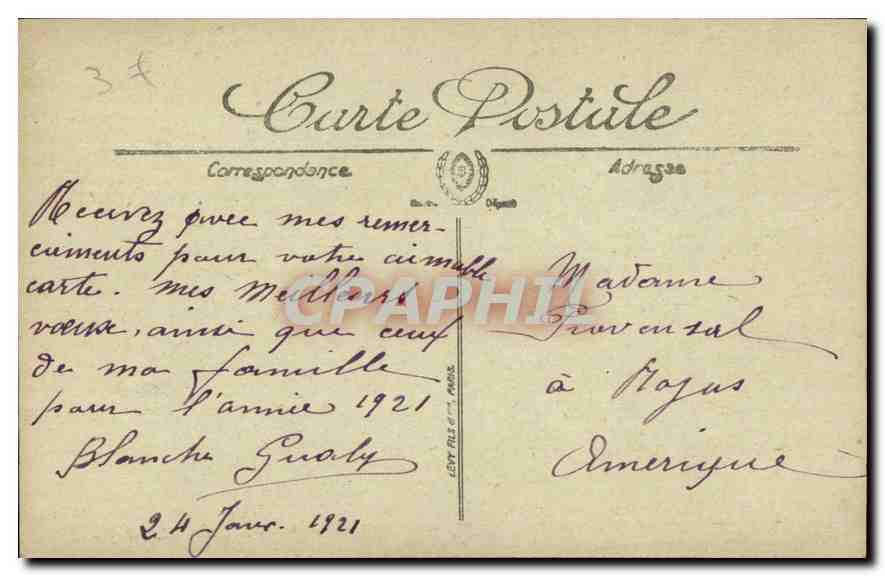 37
Carte Postale
Correspondance
Adresse
Recevez avec mes remer-
ciements pour votre aimable
carte. mes meilleurs
voeux, ainsi que ceux
de ma famille
pour l'année 1921
Blanche Gualy
24 Janv. 1921
LEVY FILS et Cie, PARIS
Madame
Provensal
à Rojas
Amerique
CPAPHIL